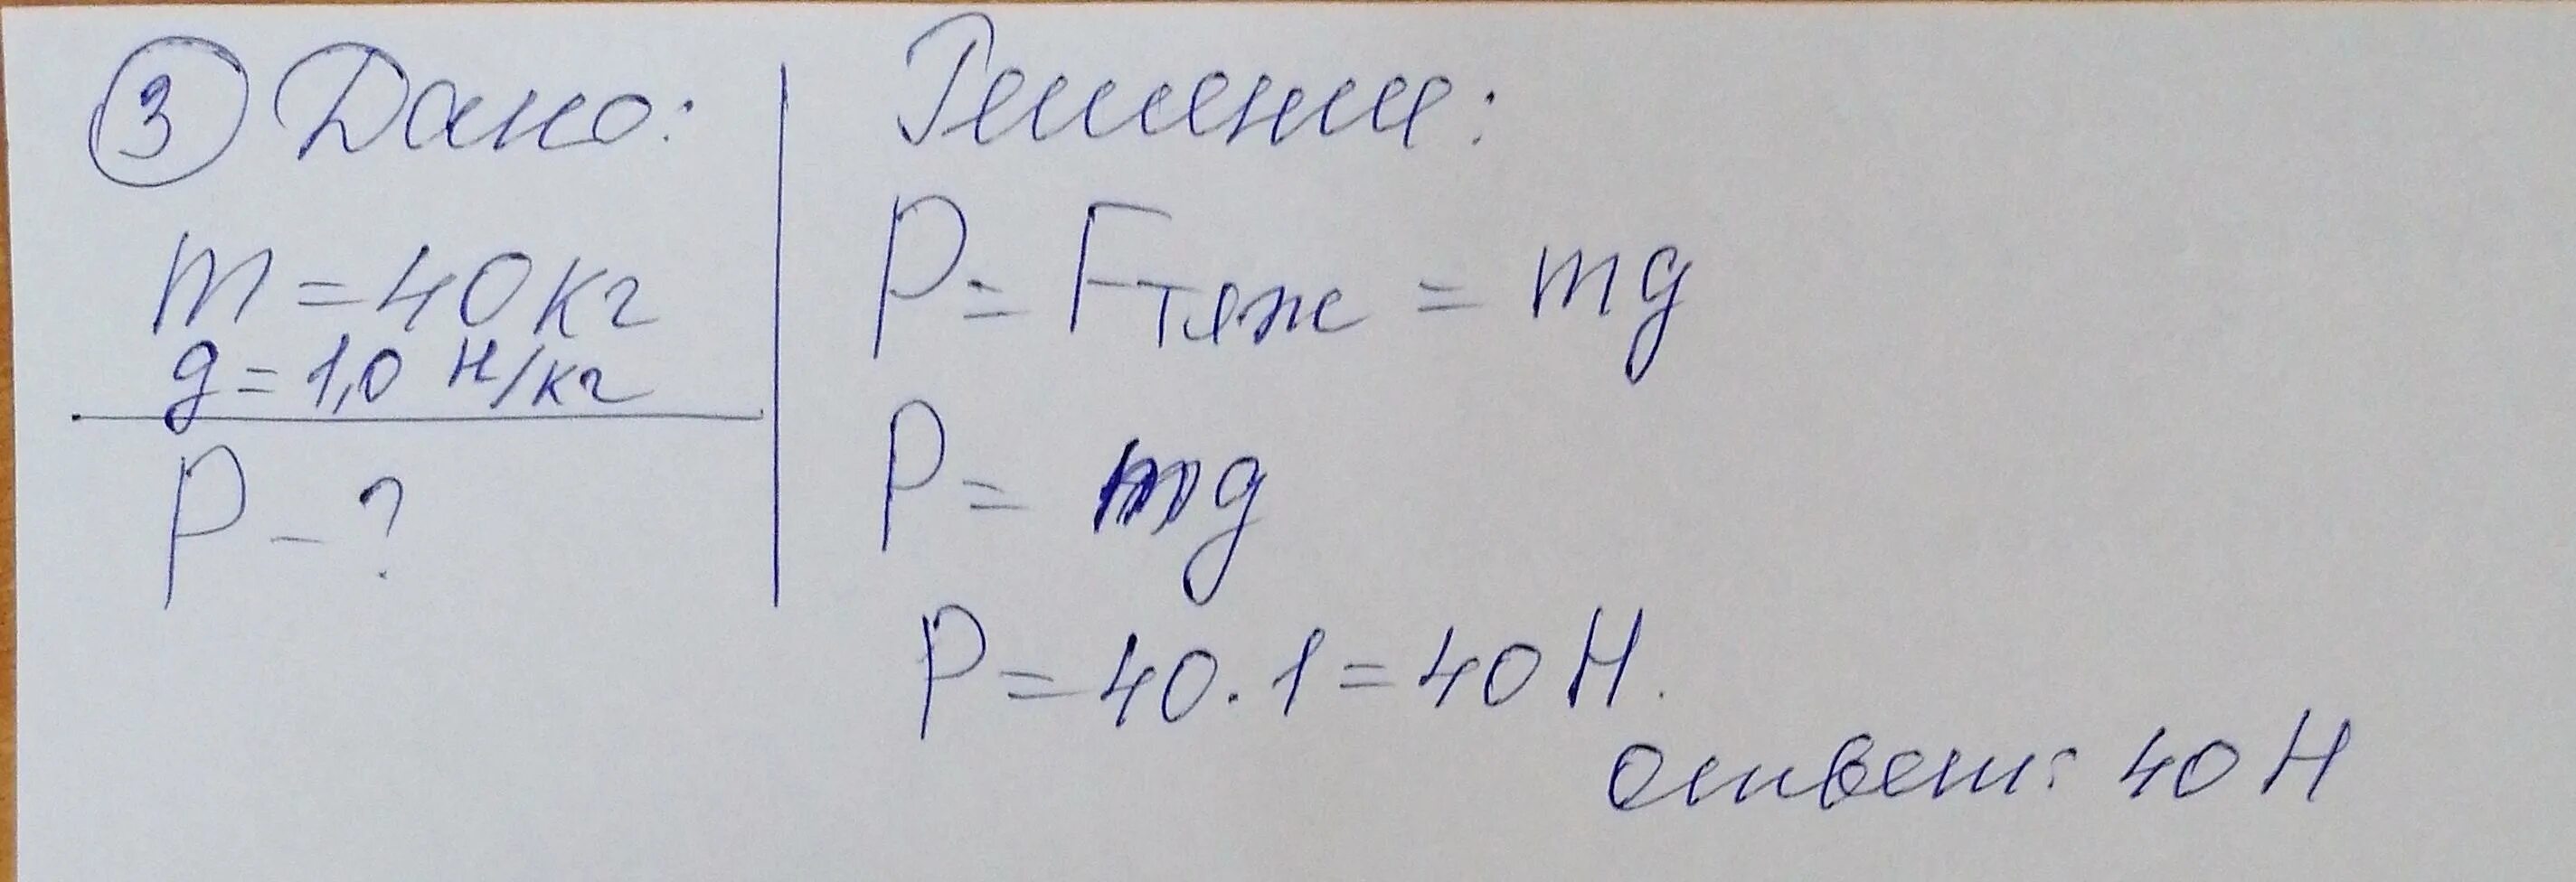 3 Дано:
m = 40 кг
g = 1,0 н/кг
P - ?
Решение:
P = Fтяж = mg
P = mg
P = 40 · 1 = 40 Н.
ответ: 40 Н